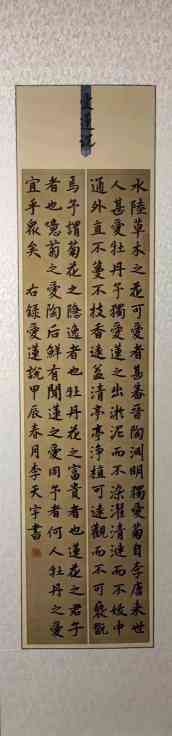 愛蓮說
水陸草木之花可愛者甚蕃晉陶淵明獨愛菊自李唐來世
人甚愛牡丹予獨愛蓮之出淤泥而不染濯清漣而不妖中
通外直不蔓不枝香遠益清亭亭淨植可遠觀而不可褻翫
焉予謂菊花之隱逸者也牡丹花之富貴者也蓮花之君子
者也噫菊之愛陶后鮮有聞蓮之愛同予者何人牡丹之愛
宜乎眾矣 右錄愛蓮說甲辰春月李天宇書